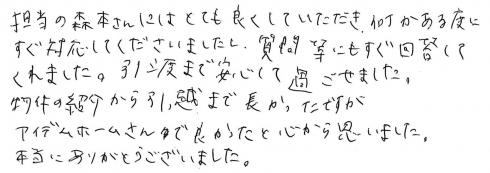 担当の森本さんにはとても良くしていただき、何かある度に
すぐ対応してくださいましたし、質問等にもすぐ回答して
くれました。引渡まで安心して過ごせました。
物件の紹介から引越まで長かったですが
アイデムホームさんで良かったと心から思いました。
本当にありがとうございました。